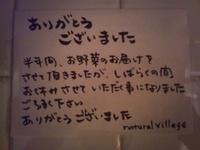 ありがとう
ございました
半年間、お野菜のお届け?
させて頂きましたが、しばらくの間
おくやみさせていただく事になりました
ごろ承下さい
ありがとうございました
natural village